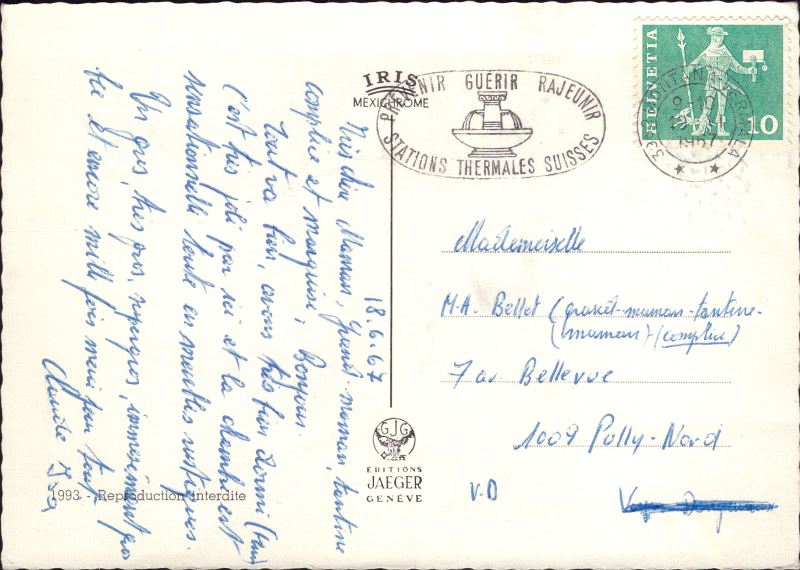 18.6.67
Très chère Maman, grand-maman, tantine
complice et marquise, Bonjour.
Tout va bien, avons très bien dormi
C'est très joli par ici et la chambre est
sensationnelle toute en meubles rustiques.
Un gros, très gros, immensément gros
bec et encore mille fois merci pour tout
Claude
1993 - Reproduction interdite
IRIS
MEXICHROME
PRÉVENIR GUÉRIR RAJEUNIR
STATIONS THERMALES SUISSES
HELVETIA
10
1967
GJG
ÉDITIONS
JAEGER
GENÈVE
Mademoiselle
M.A. Bellet (grand-maman-tantine-
(maman) (complice)
7 av. Bellevue
1009 Pully-Nord
V.D